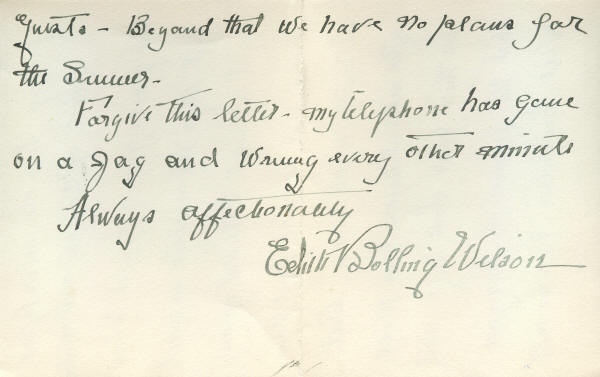 guests - Beyond that we have no plans for
the Summer -
Forgive this letter - my telephone has gone
on a Jag and wrung every other minute
Always affectionately
Edith Bolling Wilson